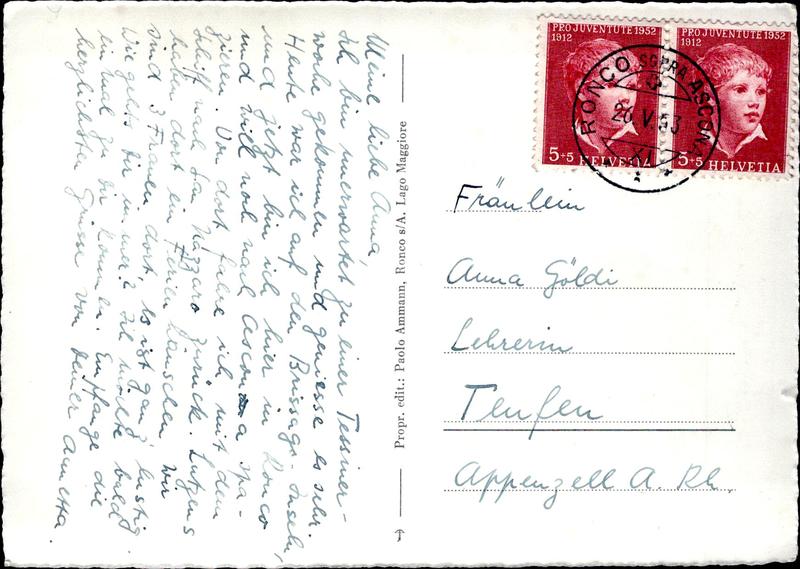 Meine liebe Anna,
Ich bin unerwartet zu einer Tessiner-
woche gekommen und geniesse es sehr.
Heute war ich auf den Brissago-Inseln,
und jetzt bin ich hier in Ronco
und will noch nach Ascona spa-
zieren. Von dort fahre ich mit dem
Schiff nach San Nazzaro zurück. Lutgens
haben dort ein Ferienhäuschen. Wir
sind 3 Frauen dort. Es ist ganz lustig.
Wie gehts dir immer? Ich möchte bald
einmal zu dir kommen. Empfange die
herzlichsten Grüsse von deiner
Propr. edit.: Paolo Ammann, Ronco s/A. Lago Maggiore
PRO JUVENTUTE 1952
1912
5+5 HELVETIA
PRO JUVENTUTE 1952
1912
5+5 HELVETIA
RONCO SOPRA ASCONA
26.V.53
Fräulein
Anna Göldi
Lehrerin
Teufen
Appenzell A. Rh.